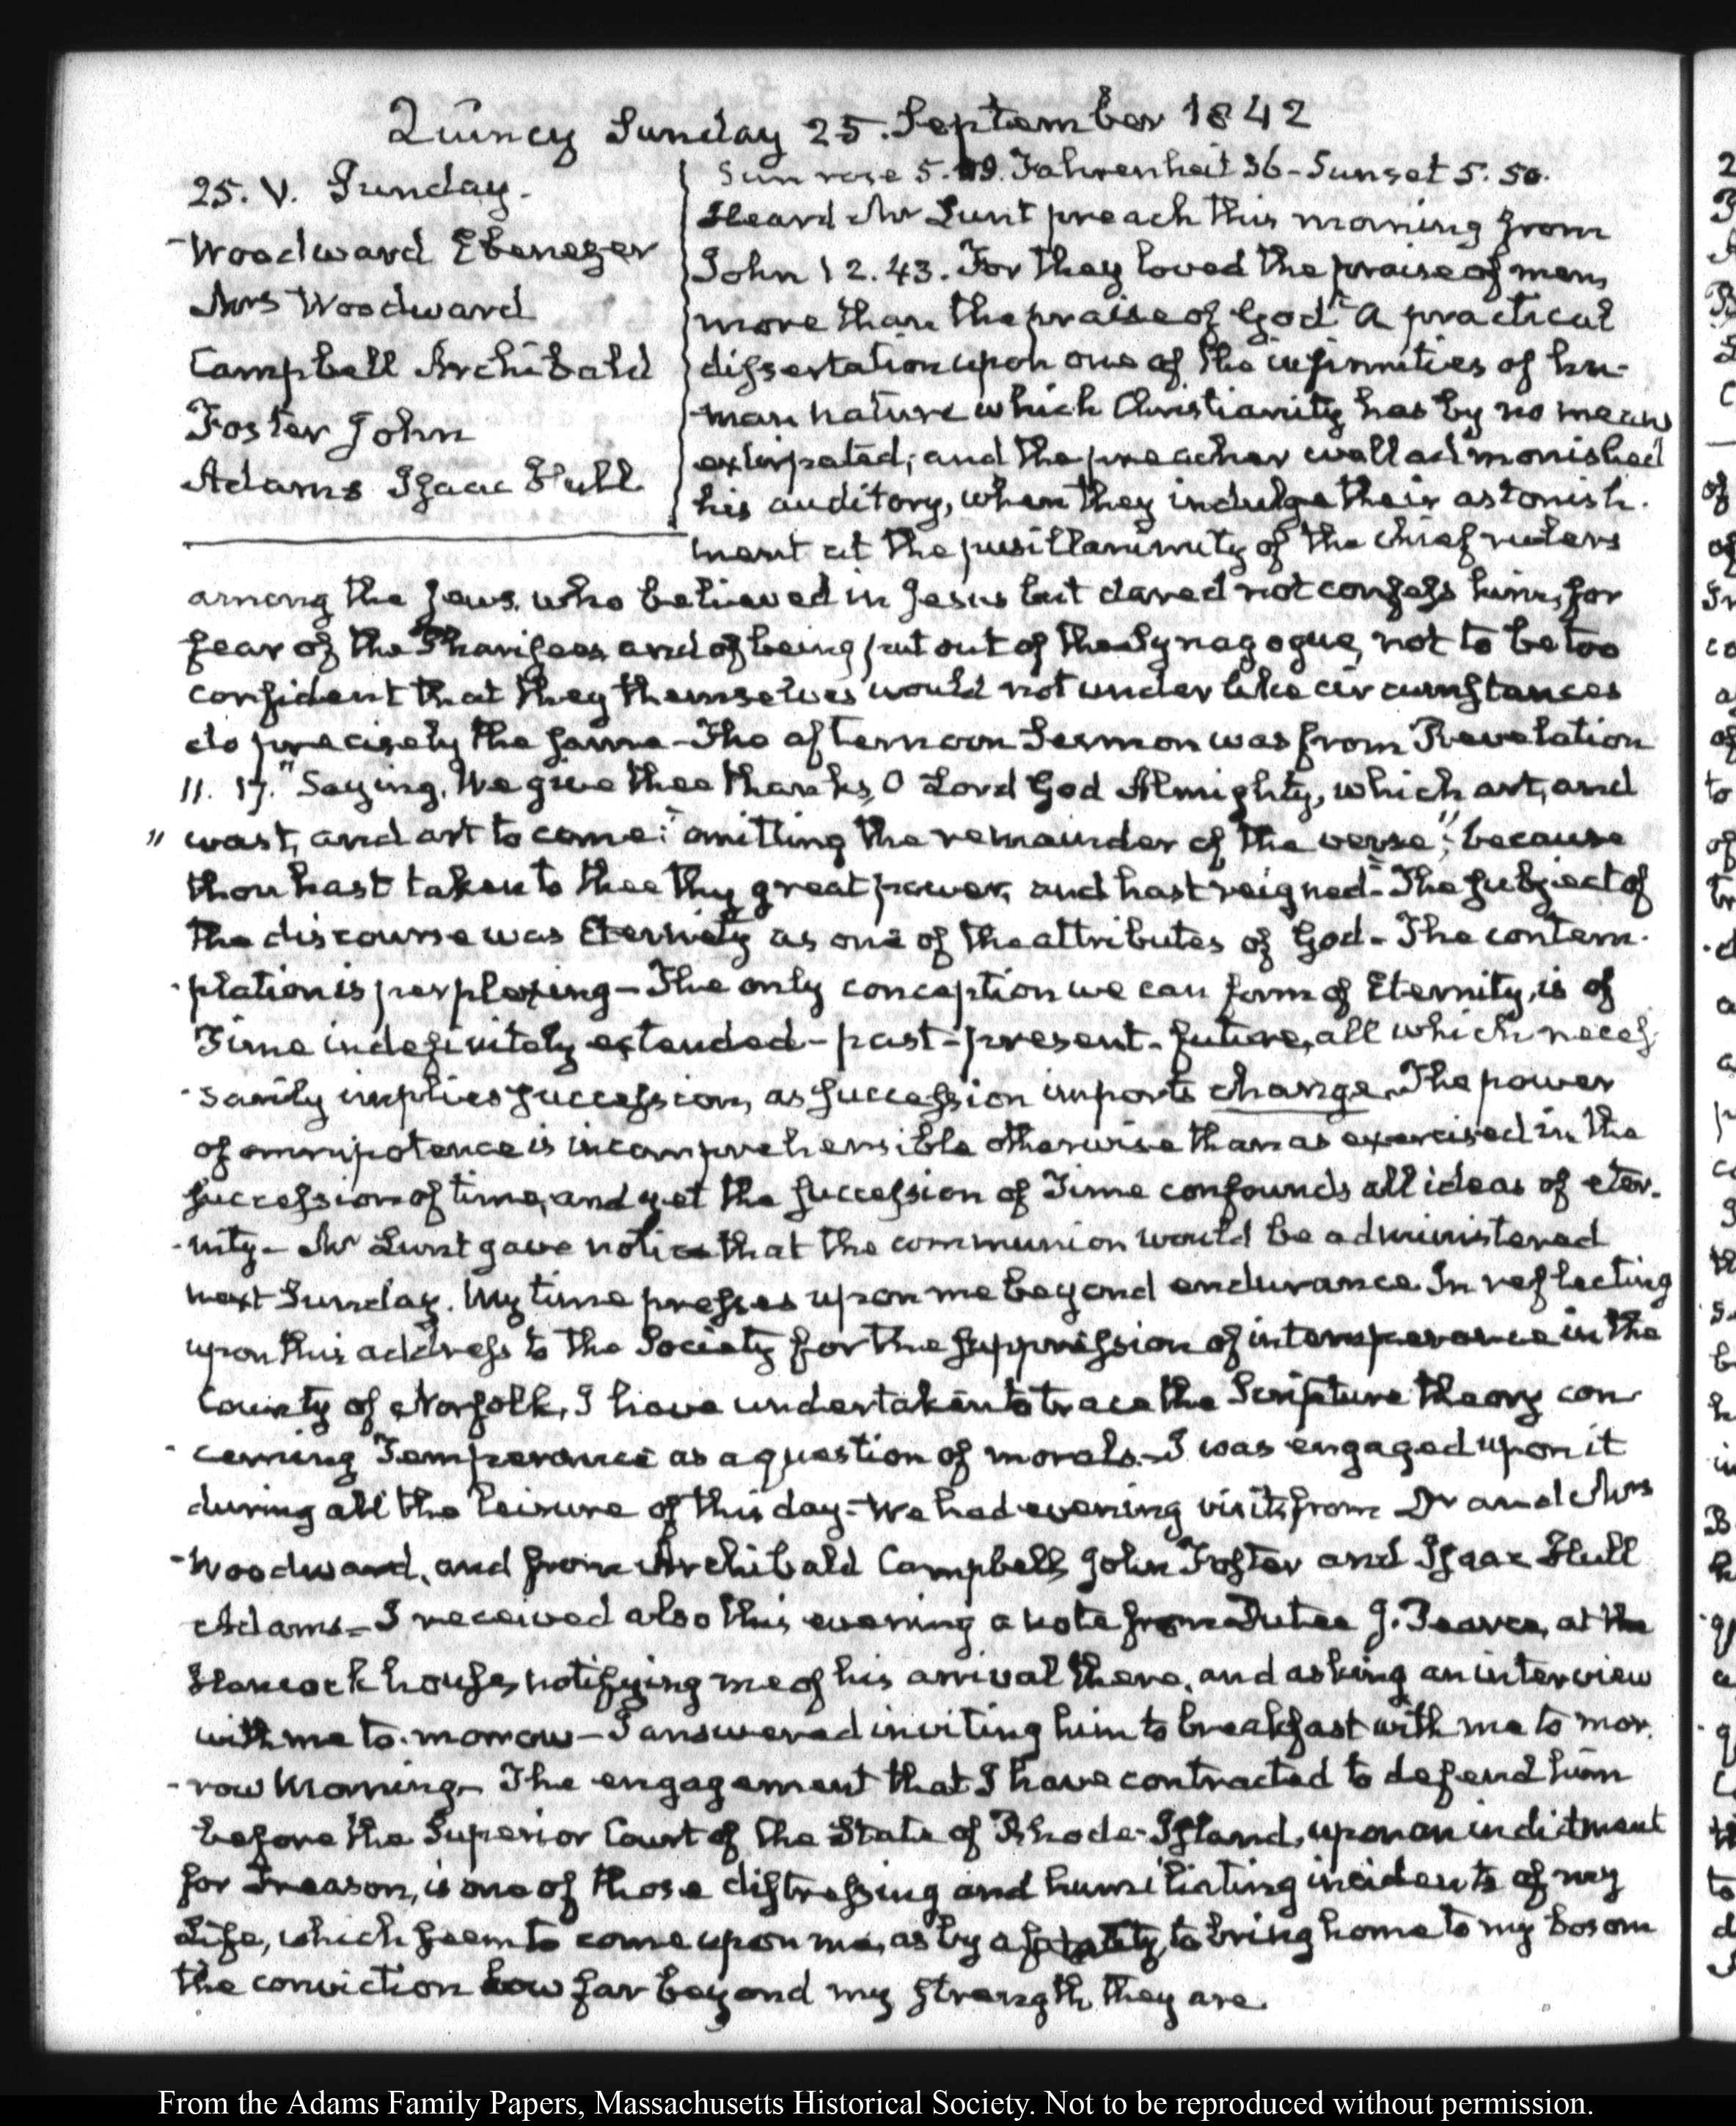 Quincy Sunday 25. September 1842
25. V. Sunday.
Woodward Ebenezer
Mrs Woodward
Campbell Archibald
Foster John
Adams Isaac Hull
Sun rose 5. Fahrenheit 36 - Sunset 5. 50.
Heard Mr Lunt preach this morning from
John 12. 43. For they loved the praise of men,
more than the praise of God" A practical
dissertation upon one of the infirmities of hu-
-man nature which Christianity has by no means
extirpated; and the preacher well admonished
his auditory, when they indulge their astonish-
ment at the pusillanimity of the chief rulers
among the Jews, who believed in Jesus but dared not confess him, for
fear of the Pharisees and of being put out of the Synagogue, not to be too
confident that they themselves would not under like circumstances
do precisely the same - The afternoon Sermon was from Revelation
11. 17. "Saying, We give thee thanks, O Lord God Almighty, which art, and
" wast, and art to come:" omitting the remainder of the verse, "because
thou hast taken to thee thy great power, and hast reigned" - The subject of
the discourse was Eternity as one of the attributes of God - The contem-
-plation is perplexing - The only conception we can form of Eternity, is of
Time indefinitely extended - past - present - future, all which neces-
-sarily implies succession, as succession imports change. The power
of omnipotence is incomprehensible otherwise than as exercised in the
succession of time, and yet the succession of Time confounds all ideas of eter-
-nity - Mr Lunt gave notice that the communion would be administered
next Sunday. My time presses upon me beyond endurance In reflecting
upon this address to the Society for the suppression of intemperance in the
County of Norfolk, I have undertaken to trace the Scripture theory con-
-cerning Temperance as a question of morals. - I was engaged upon it
during all the leisure of this day - We had evening visits from Dr and Mrs
Woodward, and from Archibald Campbell, John Foster and Isaac Hull
Adams - I received also this evening a note from Dutee J. Pearce, at the
Hancock house, notifying me of his arrival there, and asking an interview
with me to-morrow - I answered inviting him to breakfast with me to mor-
-row Morning - The engagement that I have contracted to defend him
before the Superior Court of the State of Rhode-Island, upon an indictment
for Treason, is one of those distressing and humiliating incidents of my
Life, which seem to come upon me, as by a fatality, to bring home to my bosom
the conviction how far beyond my strength they are.
From the Adams Family Papers, Massachusetts Historical Society. Not to be reproduced without permission.